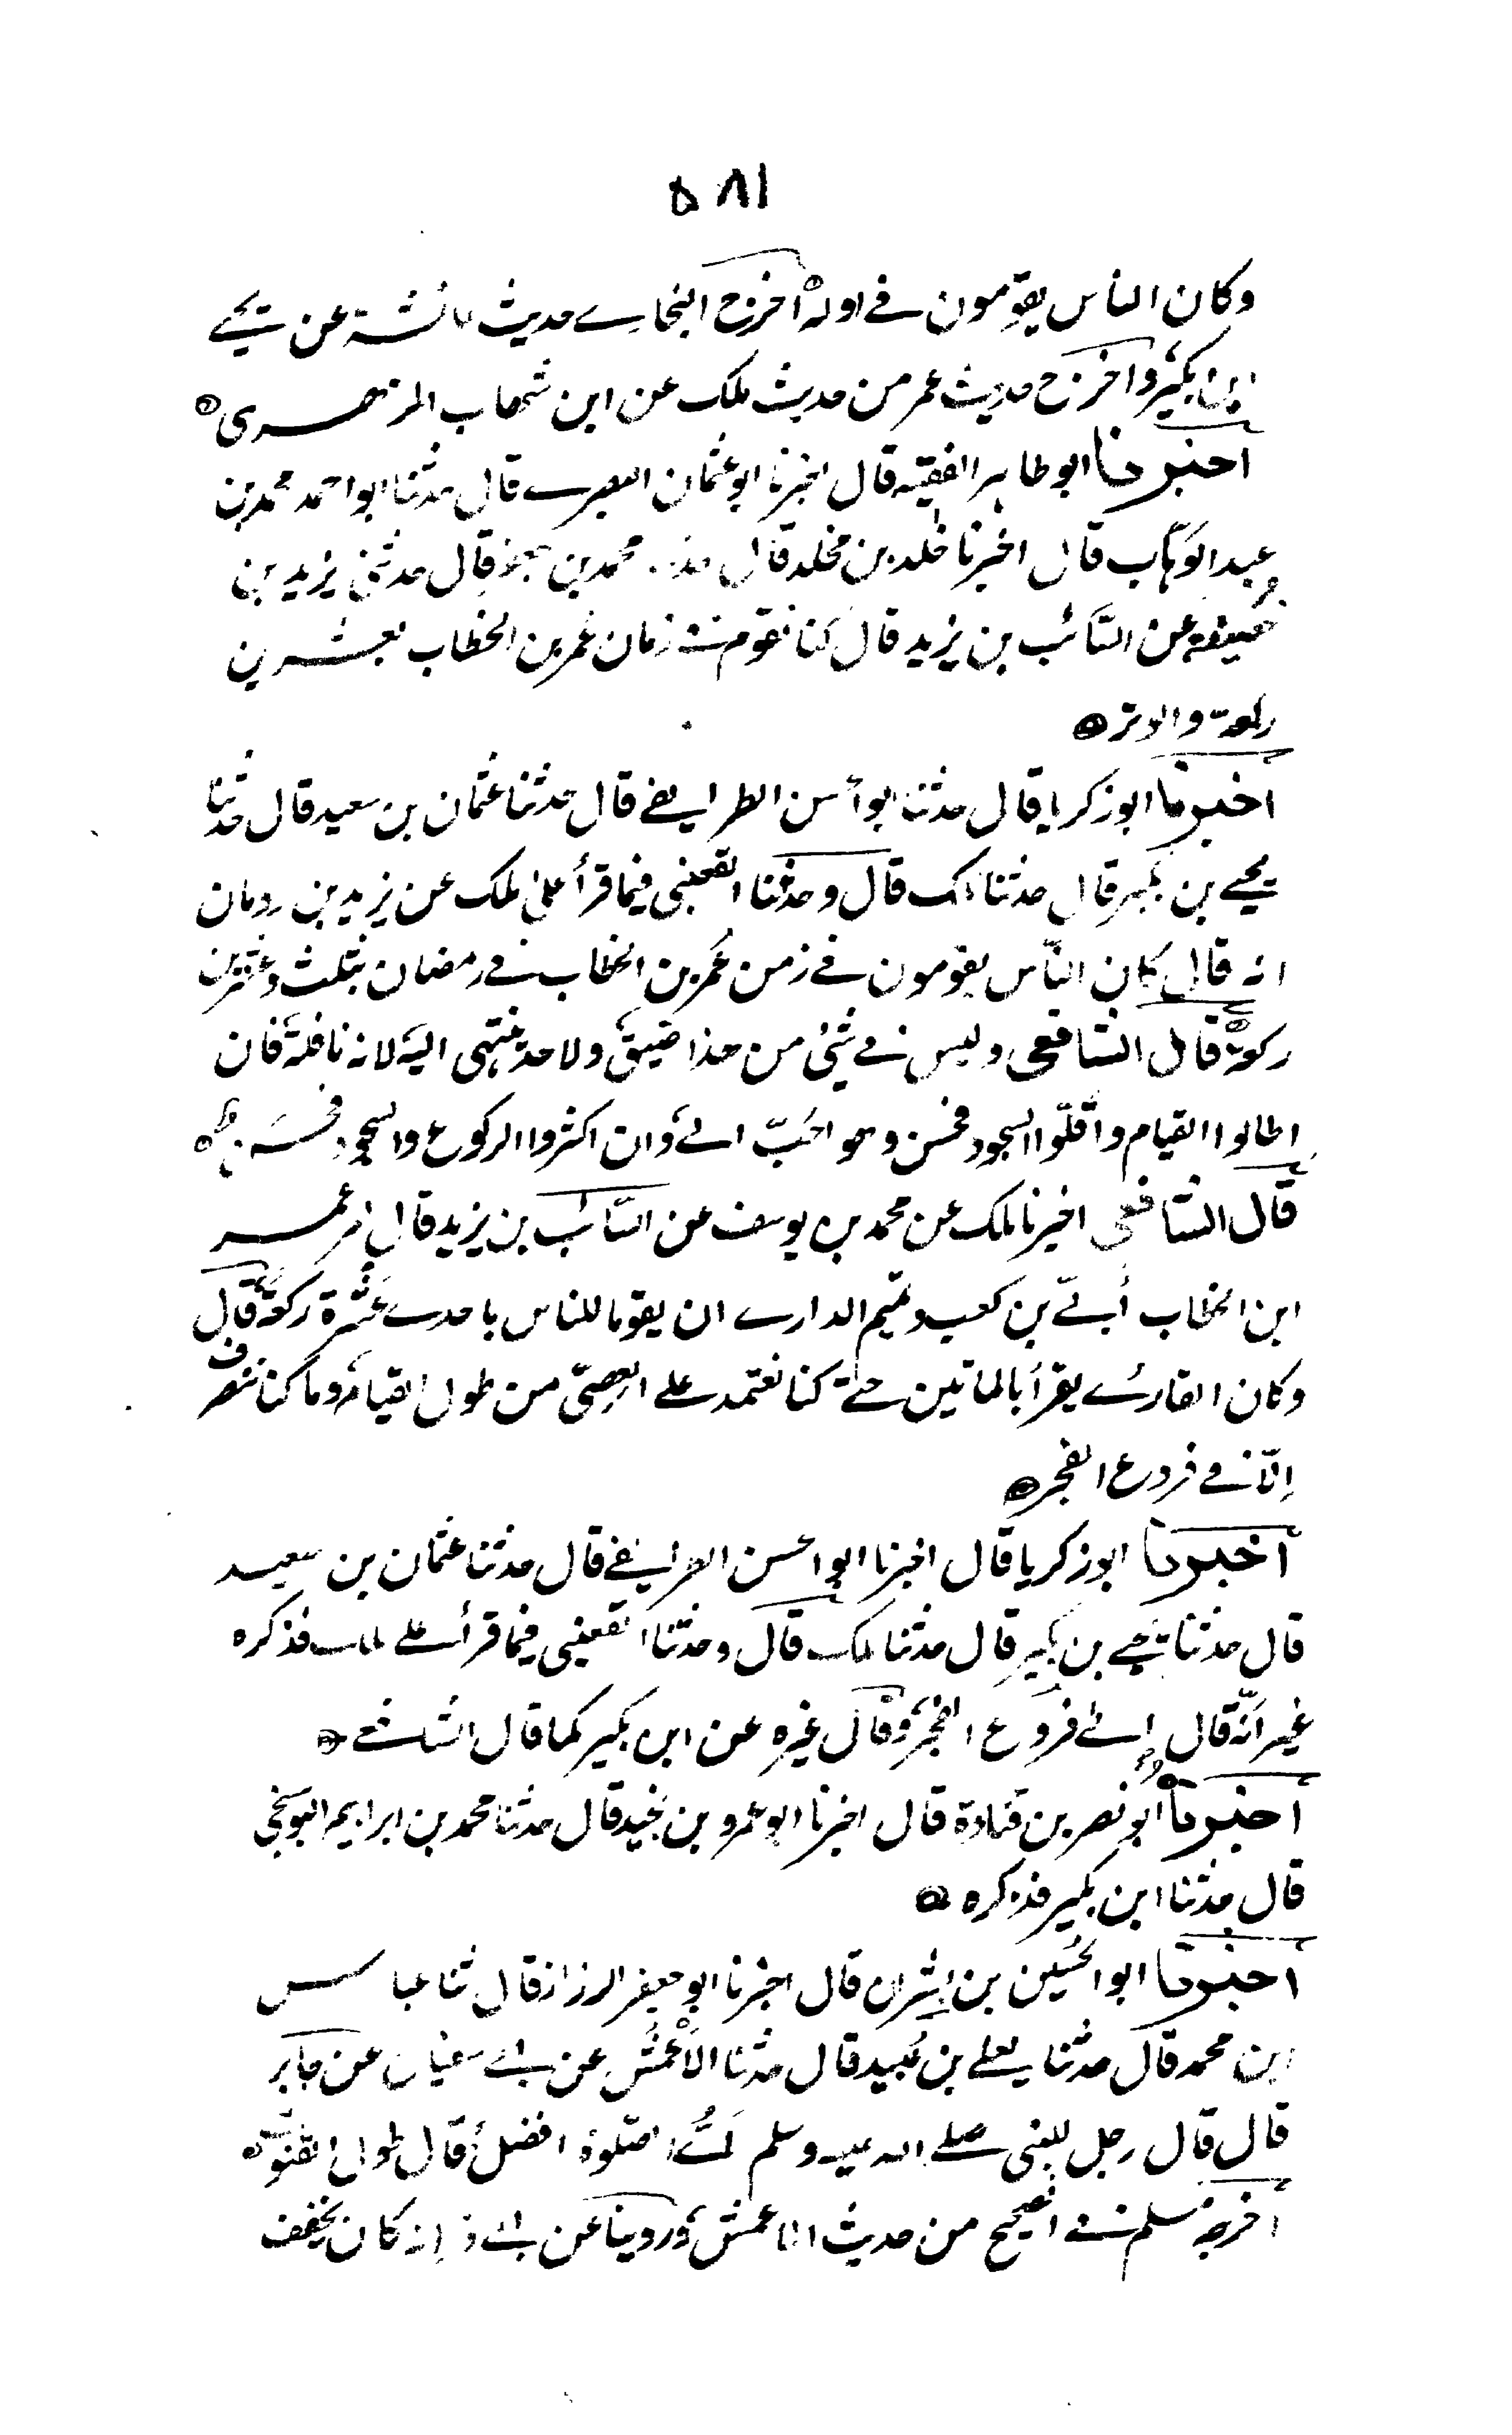 ٥٨١
وكان الناس يقومون في اوله اخرج البخاري حديث عائشة عن يحيى
ابن بكير واخرج حديث عمر من حديث ملك عن ابن شهاب الزهرى
اخبرنا ابو طاهر الفقيه قال اخبرنا ابو عثمان البصري قال حدثنا ابو احمد محمد بن
عبد الوهّاب قال اخبرنا خلد بن مخلد قال محمد بن جعفر قال حدثني يزيد بن
خصيفة عن السّائب بن يزيد قال كنا نقوم في زمان عمر بن الخطاب بعشرين
ركعة والوتر
اخبرنا ابو زكريا قال حدثنا ابو الحسن الطرايفي قال حدثنا عثمان بن سعيد قال حدثنا
يحيى بن بكير قال حدثنا ملك قال وحدثنا القعنبى فيما قرأ على ملك عن يزيد بن رومان
انه قال كان النّاس يقومون في زمن عمر بن الخطاب في رمضان بثلث وعشرين
ركعة قال الشافعى وليس في شئ من هذا ضيق ولا حد ينتهى اليه لانه نافلة فان
اطالوا القيام واقلّوا السجود فحسن وهو احبّ الي وان اكثروا الركوع والسجود فحسن
قال الشافعى اخبرنا ملك عن محمد بن يوسف عن السّائب بن يزيد قال امر عمر
ابن الخطاب أبيّ بن كعب وتميم الداري ان يقوما للناس باحدى عشرة ركعة قال
وكان القارئ يقرأ بالمائتين حتى كنا نعتمد على العصيّ من طول القيام وما كنا ننصرف
إلّا في فروع الفجر
اخبرنا ابو زكريا قال اخبرنا ابو الحسن الطرايفي قال حدثنا عثمان بن سعيد
قال حدثنا يحيى بن بكير قال حدثنا ملك قال وحدثنا القعنبى فيما قرأ على ملك فذكره
غير انّه قال إلى فروع الفجر وقال غيره عن ابن بكير كما قال الشافعي
اخبرنا ابو نصر بن قتادة قال اخبرنا ابو عمرو بن نجيد قال حدثنا محمد بن ابراهيم البوشنجي
قال حدثنا ابن بكير فذكره
اخبرنا ابو الحسين بن بشران قال اخبرنا ابو جعفر الرزاز قال ثنا عباس
ابن محمد قال حدثنا يعلى بن عُبيد قال حدثنا الأعمش عن أبي سفيان عن جابر
قال قال رجل للنبى صلى الله عليه وسلم أيّ الصلوة افضل قال طول القنوت
اخرجه مسلم في الصحيح من حديث الاعمش وروينا عن أبي ذر انه كان يخفف